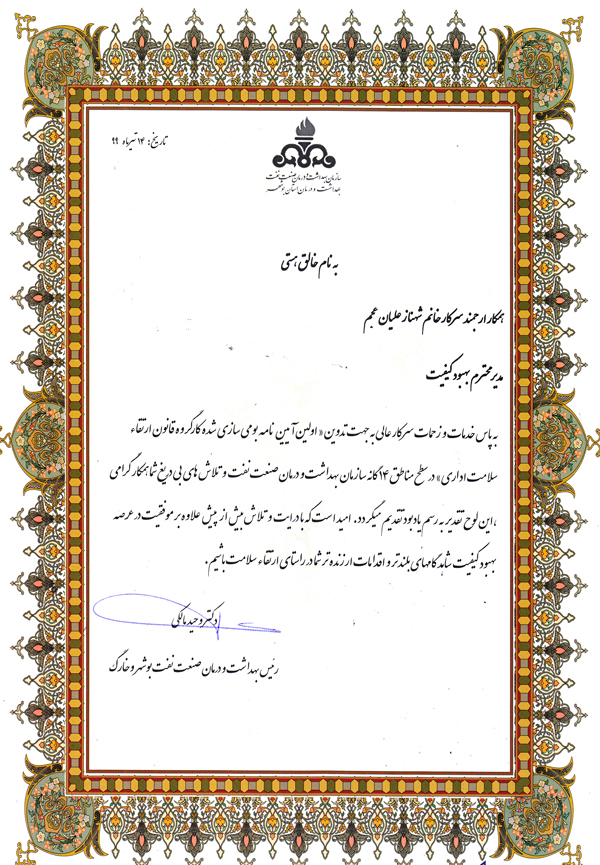 تاریخ: ۱۴ تیرماه ۹۹
سازمان بهداشت و درمان صنعت نفت
بهداشت و درمان استان بوشهر
به نام خالق هستی
همکار ارجمند سرکار خانم شهناز علیان عجم
مدیر محترم بهبود کیفیت
به پاس خدمات و زحمات سرکار عالی به جهت تدوین « اولین آیین نامه بومی سازی شده کارگروه قانون ارتقاء
سلامت اداری» در سطح مناطق ۱۴ گانه سازمان بهداشت و درمان صنعت نفت و تلاش های بی دریغ شما همکار گرامی
، این لوح تقدیر به رسم یادبود تقدیم میگردد. امید است که با درایت و تلاش بیش از پیش علاوه بر موفقیت در عرصه
بهبود کیفیت شاهد گامهای بلندتر و اقدامات ارزنده تر شما در راستای ارتقاء سلامت باشیم.
دکتر وحید مالکی
رئیس بهداشت و درمان صنعت نفت بوشهر و خارک